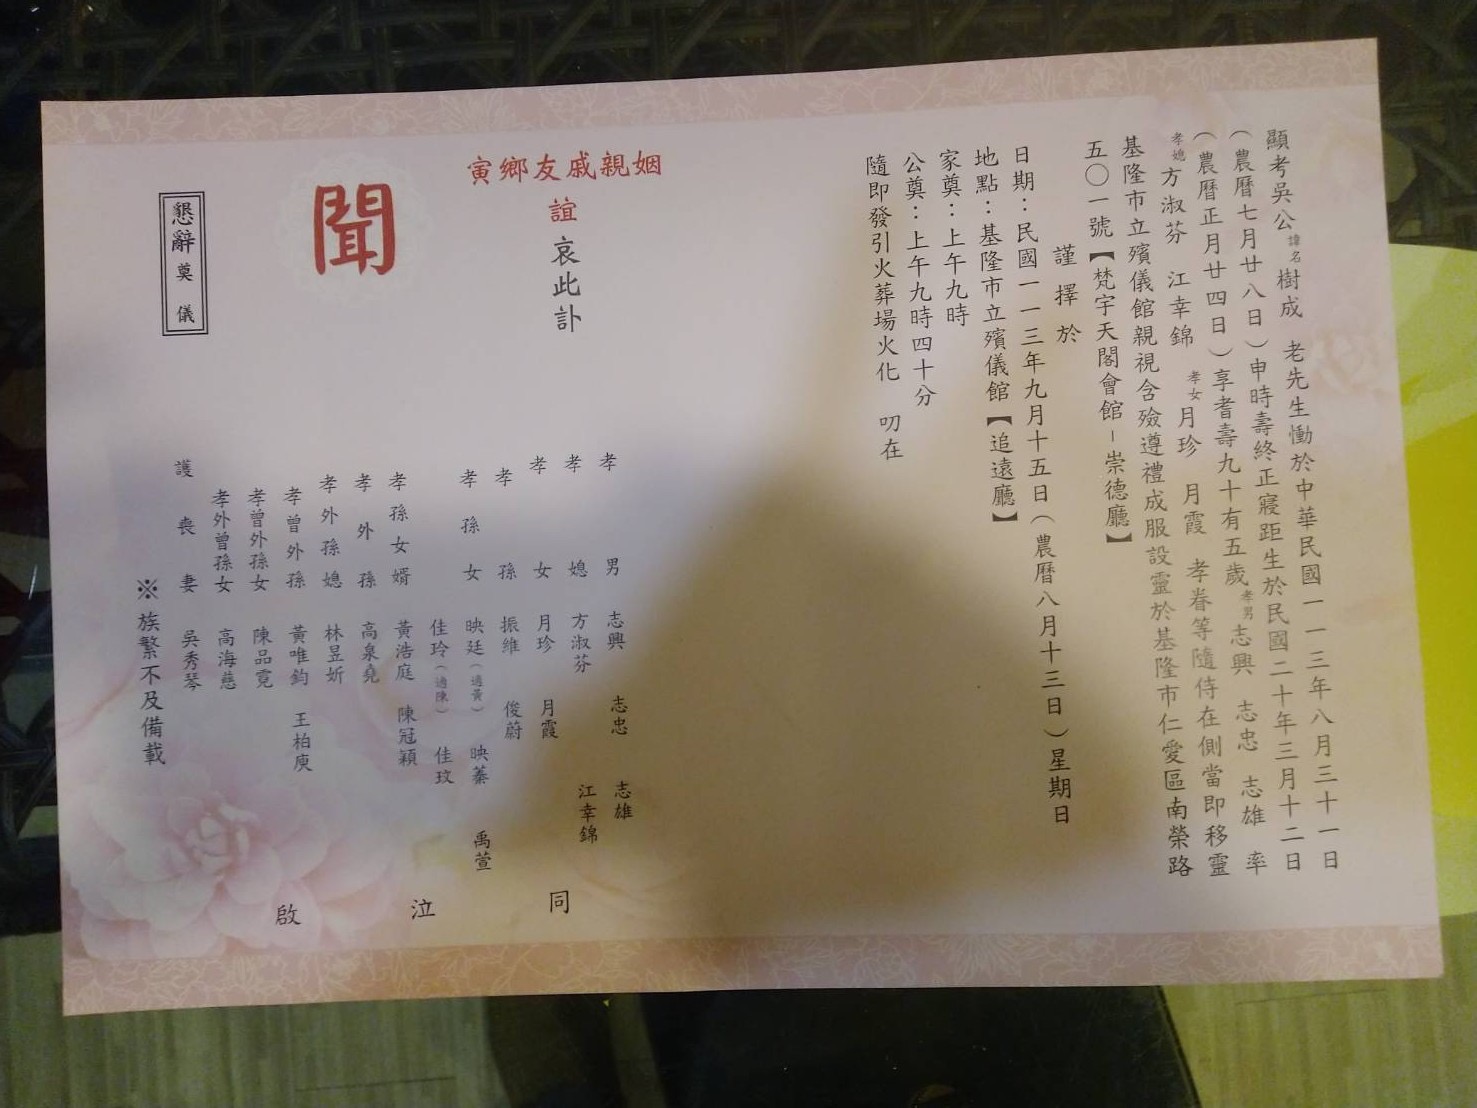 顯考吳公諱名樹成 老先生慟於中華民國一一三年八月三十一日
（農曆七月廿八日）申時壽終正寢距生於民國二十年三月十二日
（農曆正月廿四日）享耆壽九十有五歲孝男志興 志忠 志雄 率
孝媳方淑芬 江幸錦 孝女月珍 月霞 孝眷等隨侍在側當即移靈
基隆市立殯儀館親視含殮遵禮成服設靈於基隆市仁愛區南榮路
五〇一號【梵宇天閣會館–崇德廳】
謹擇於
日期：民國一一三年九月十五日（農曆八月十三日）星期日
地點：基隆市立殯儀館【追遠廳】
家奠：上午九時
公奠：上午九時四十分
隨即發引火葬場火化 叨在
姻親戚友鄉寅
誼哀此訃
聞
懇辭奠儀
孝男 志興 志忠 志雄
孝媳 方淑芬 江幸錦
孝女 月珍 月霞
孝孫 振維 俊蔚
孝孫女 映廷（適黃） 映蓁 禹萱
佳玲（適陳） 佳玟
孝孫女婿 黃浩庭 陳冠穎
孝外孫 高泉堯
孝外孫媳 林昱妡
孝曾外孫 黃唯鈞 王柏庾
孝曾外孫女 陳品霓
孝外曾孫女 高海慈
護喪妻 吳秀琴
※族繁不及備載
同泣啟